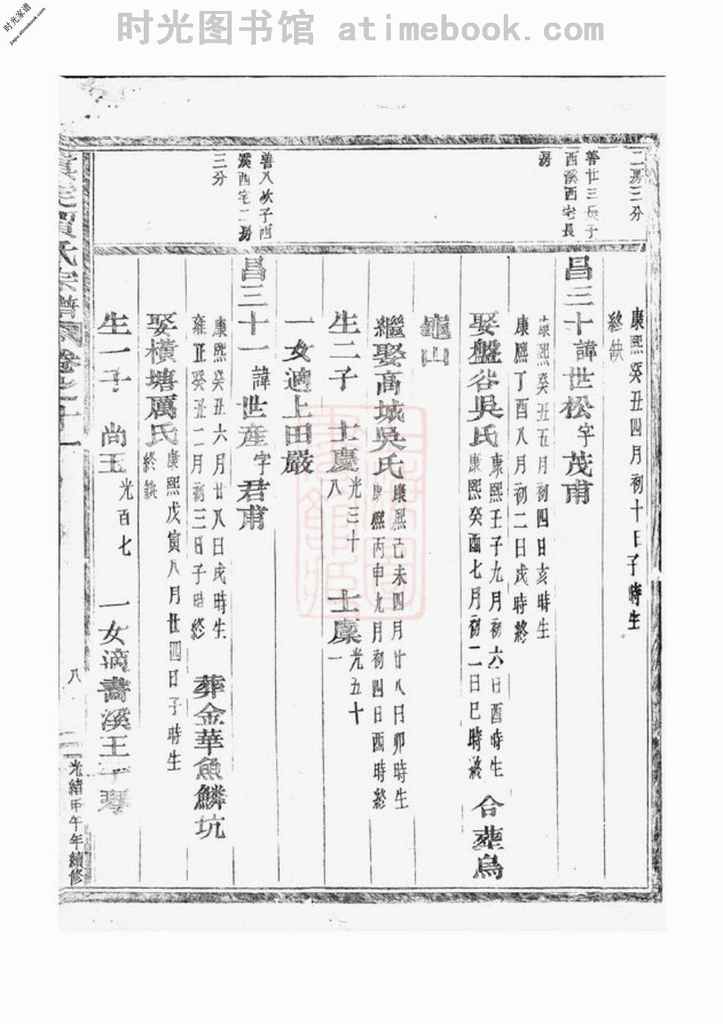 时光图书馆 atimebook.com
时光家谱
jiapu.atimebook.com
二房三分
善廿三長子
西溪西宅長
房
善八次子西
溪西宅二房
三分
康熙癸丑四月初十日子時生
終缺
昌三十諱世松字茂甫
康熙癸丑五月初四日亥時生
康熙丁酉八月初二日戌時終
娶盤谷吳氏康熙壬子九月初六日酉時生
康熙癸酉七月初二日巳時終 合葬烏
龜山
繼娶高城吳氏康熙己未四月廿八日卯時生
康熙丙申九月初四日酉時終
生二子 士慶光三十八 士麇光五十一
一女適上田嚴
昌三十一諱世產字君甫
康熙癸丑六月廿八日戌時生
雍正癸丑二月初三日子時終 葬金華魚鱗坑
娶橫塘厲氏康熙戊寅八月廿四日子時生
終缺
生一子 尚玉光百七 一女適書溪王子琴
氏宗譜
八
光緒甲午年續修